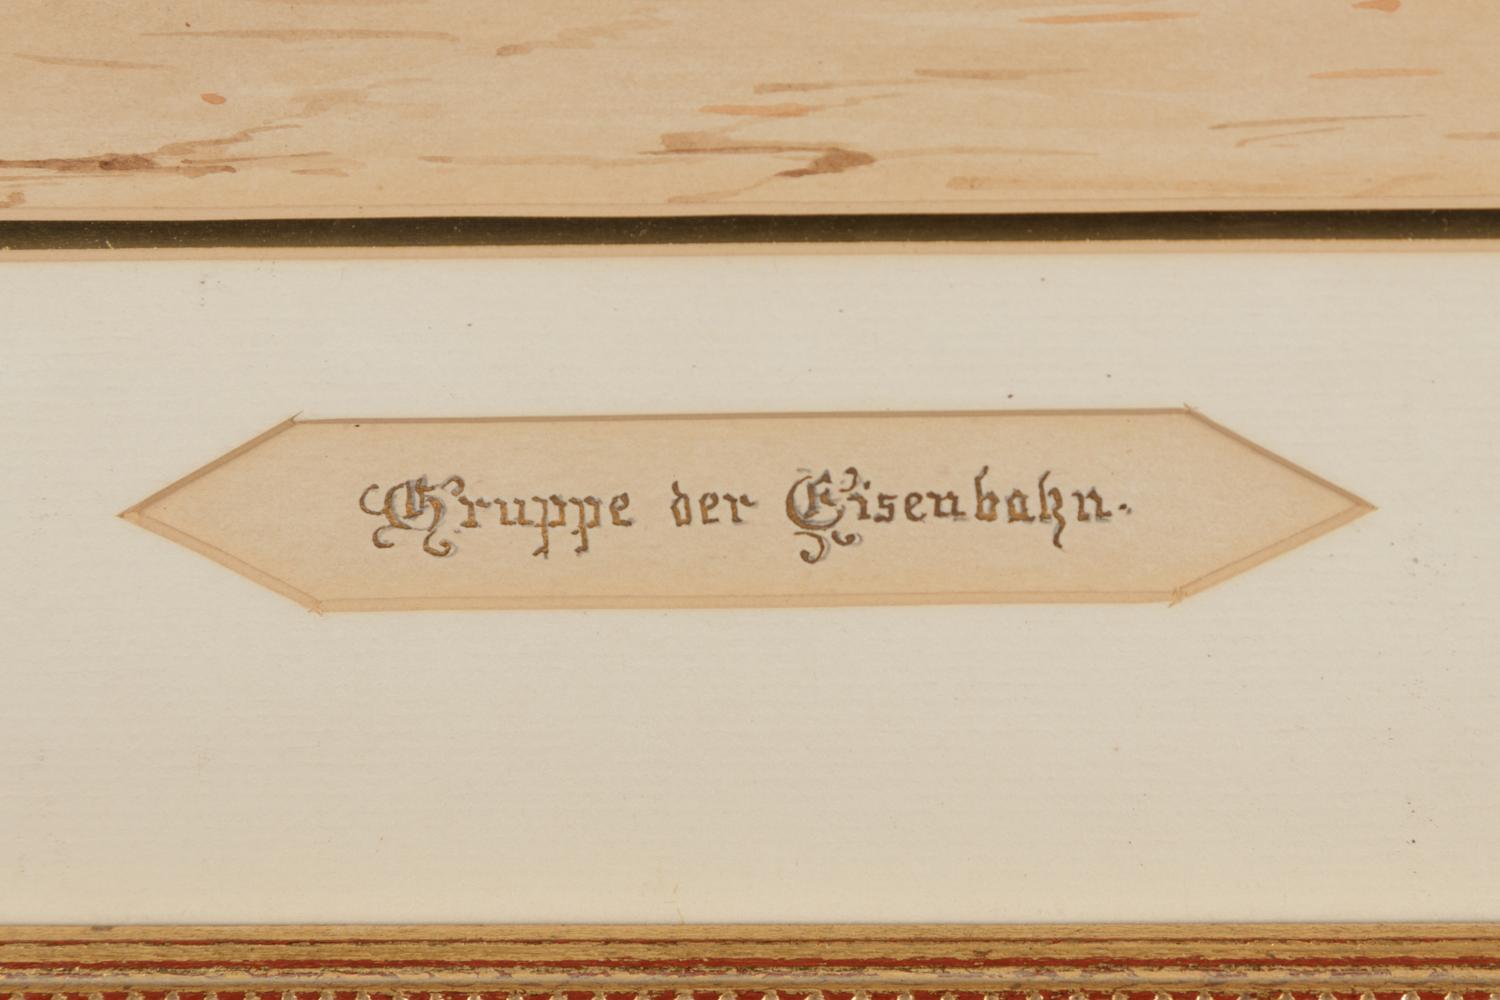 Gruppe der Eisenbahn.